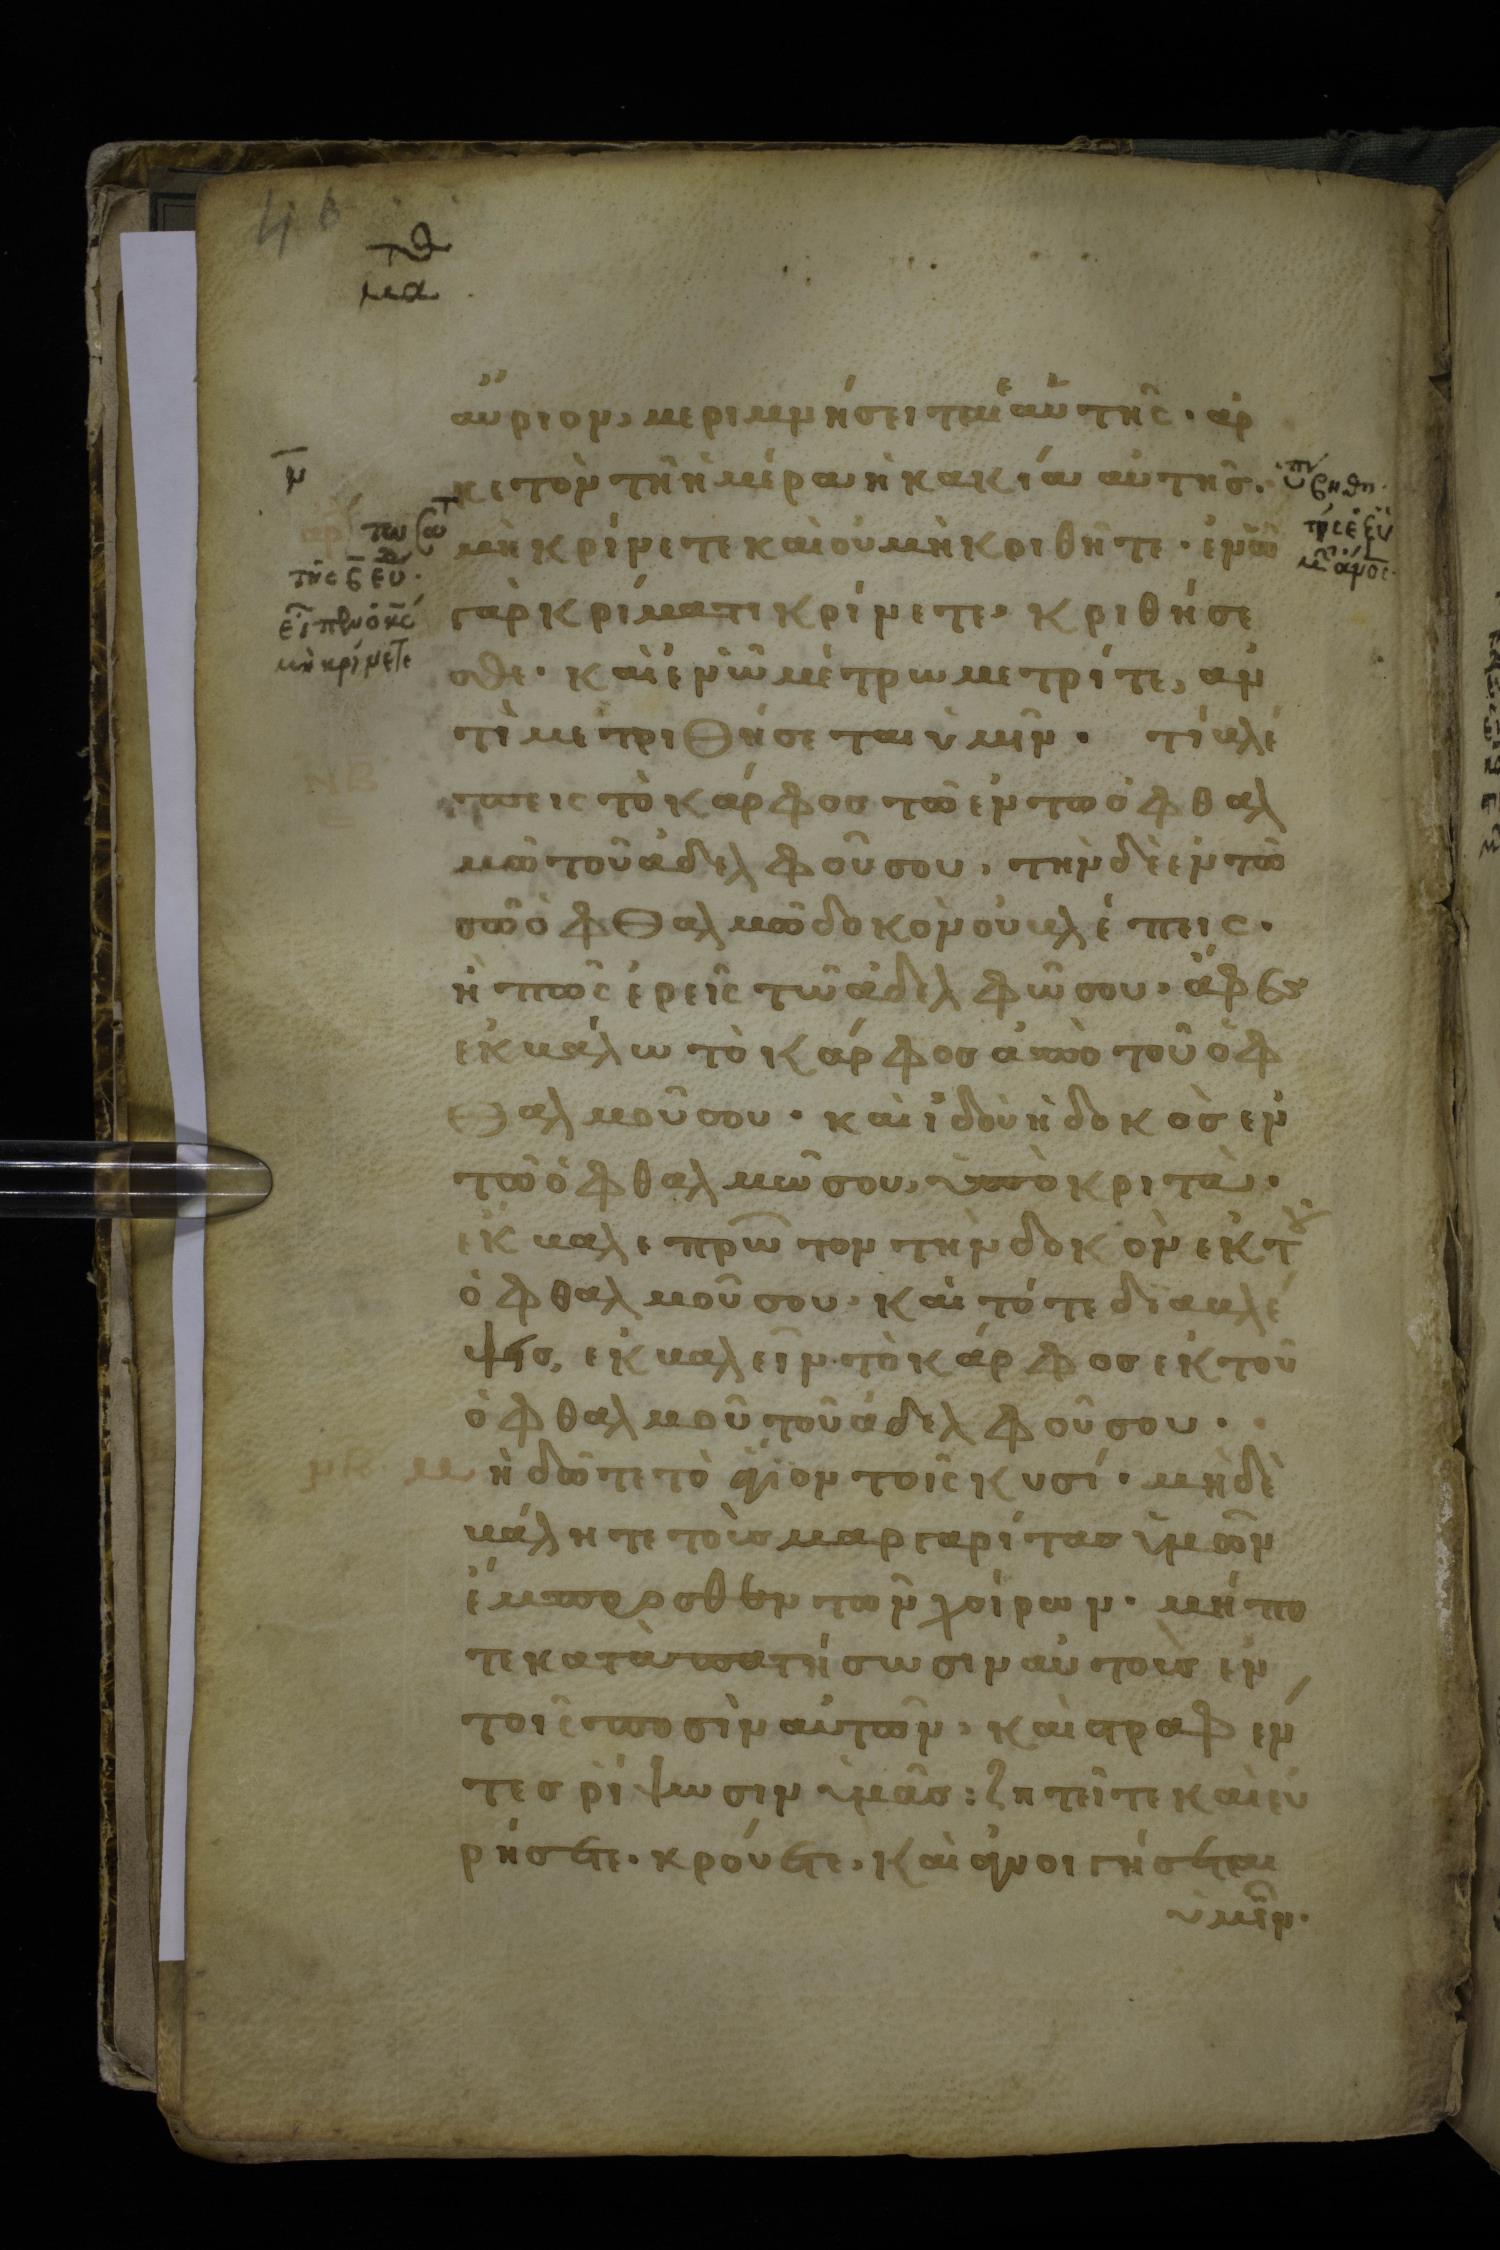 αύριον, μεριμνήσει τὰ ἑαυτῆς· ἀρ
κετὸν τῆ ἡμέρα ἡ κακία αὐτῆς.
μὴ κρίνετε καὶ οὐ μὴ κριθῆτε· ἐν ὧ
γὰρ κρίματι κρίνετε, κριθήσε
σθε· καὶ ἐν ὧ μέτρω μετρίτε, ἀν
τιμετριθήσεται ὑμῖν· τί βλέ
πεις τὸ κάρφος τῶ ἐν τω ὀφθαλ
μῶ τοῦ ἀδελφοῦ σου, τὴν δὲ ἐν τῶ
σῶ ὀφθαλμῶ δοκὸν οὐ βλέπεις·
ἢ πῶς ἐρεῖς τῶ ἀδελφῶ σου· ἄφες
ἐκβάλω τὸ κάρφος ἀπὸ τοῦ ὀφ
θαλμοῦ σου· καὶ ἰδοὺ ἡ δοκὸς ἐν
τῶ ὀφθαλμῶ σου, ὑποκριτὰ·
ἔκβαλε πρῶτον τὴν δοκὸν ἐκ τοῦ
ὀφθαλμοῦ σου· καὶ τότε διαβλέ
ψεις, ἐκβαλεῖν τὸ κάρφος ἐκ τοῦ
ὀφθαλμοῦ τοῦ ἀδελφοῦ σου·
μὴ δῶτε τὸ ἅγιον τοῖς κυσί· μηδὲ
βάλητε τοὺς μαργαρίτας ὑμῶν
ἔμπροσθεν τῶν χοίρων· μήπο
τε καταπατήσωσιν αὐτοὺς ἐν
τοῖς ποσὶν αὐτῶν, καὶ στραφέν
τες ῥίψωσιν ὑμᾶς: ζητεῖτε καὶ εὑ
ρήσετε· κρούετε, καὶ ἀνοιγήσεται
ὑμῖν·
μὴ κρίνετε